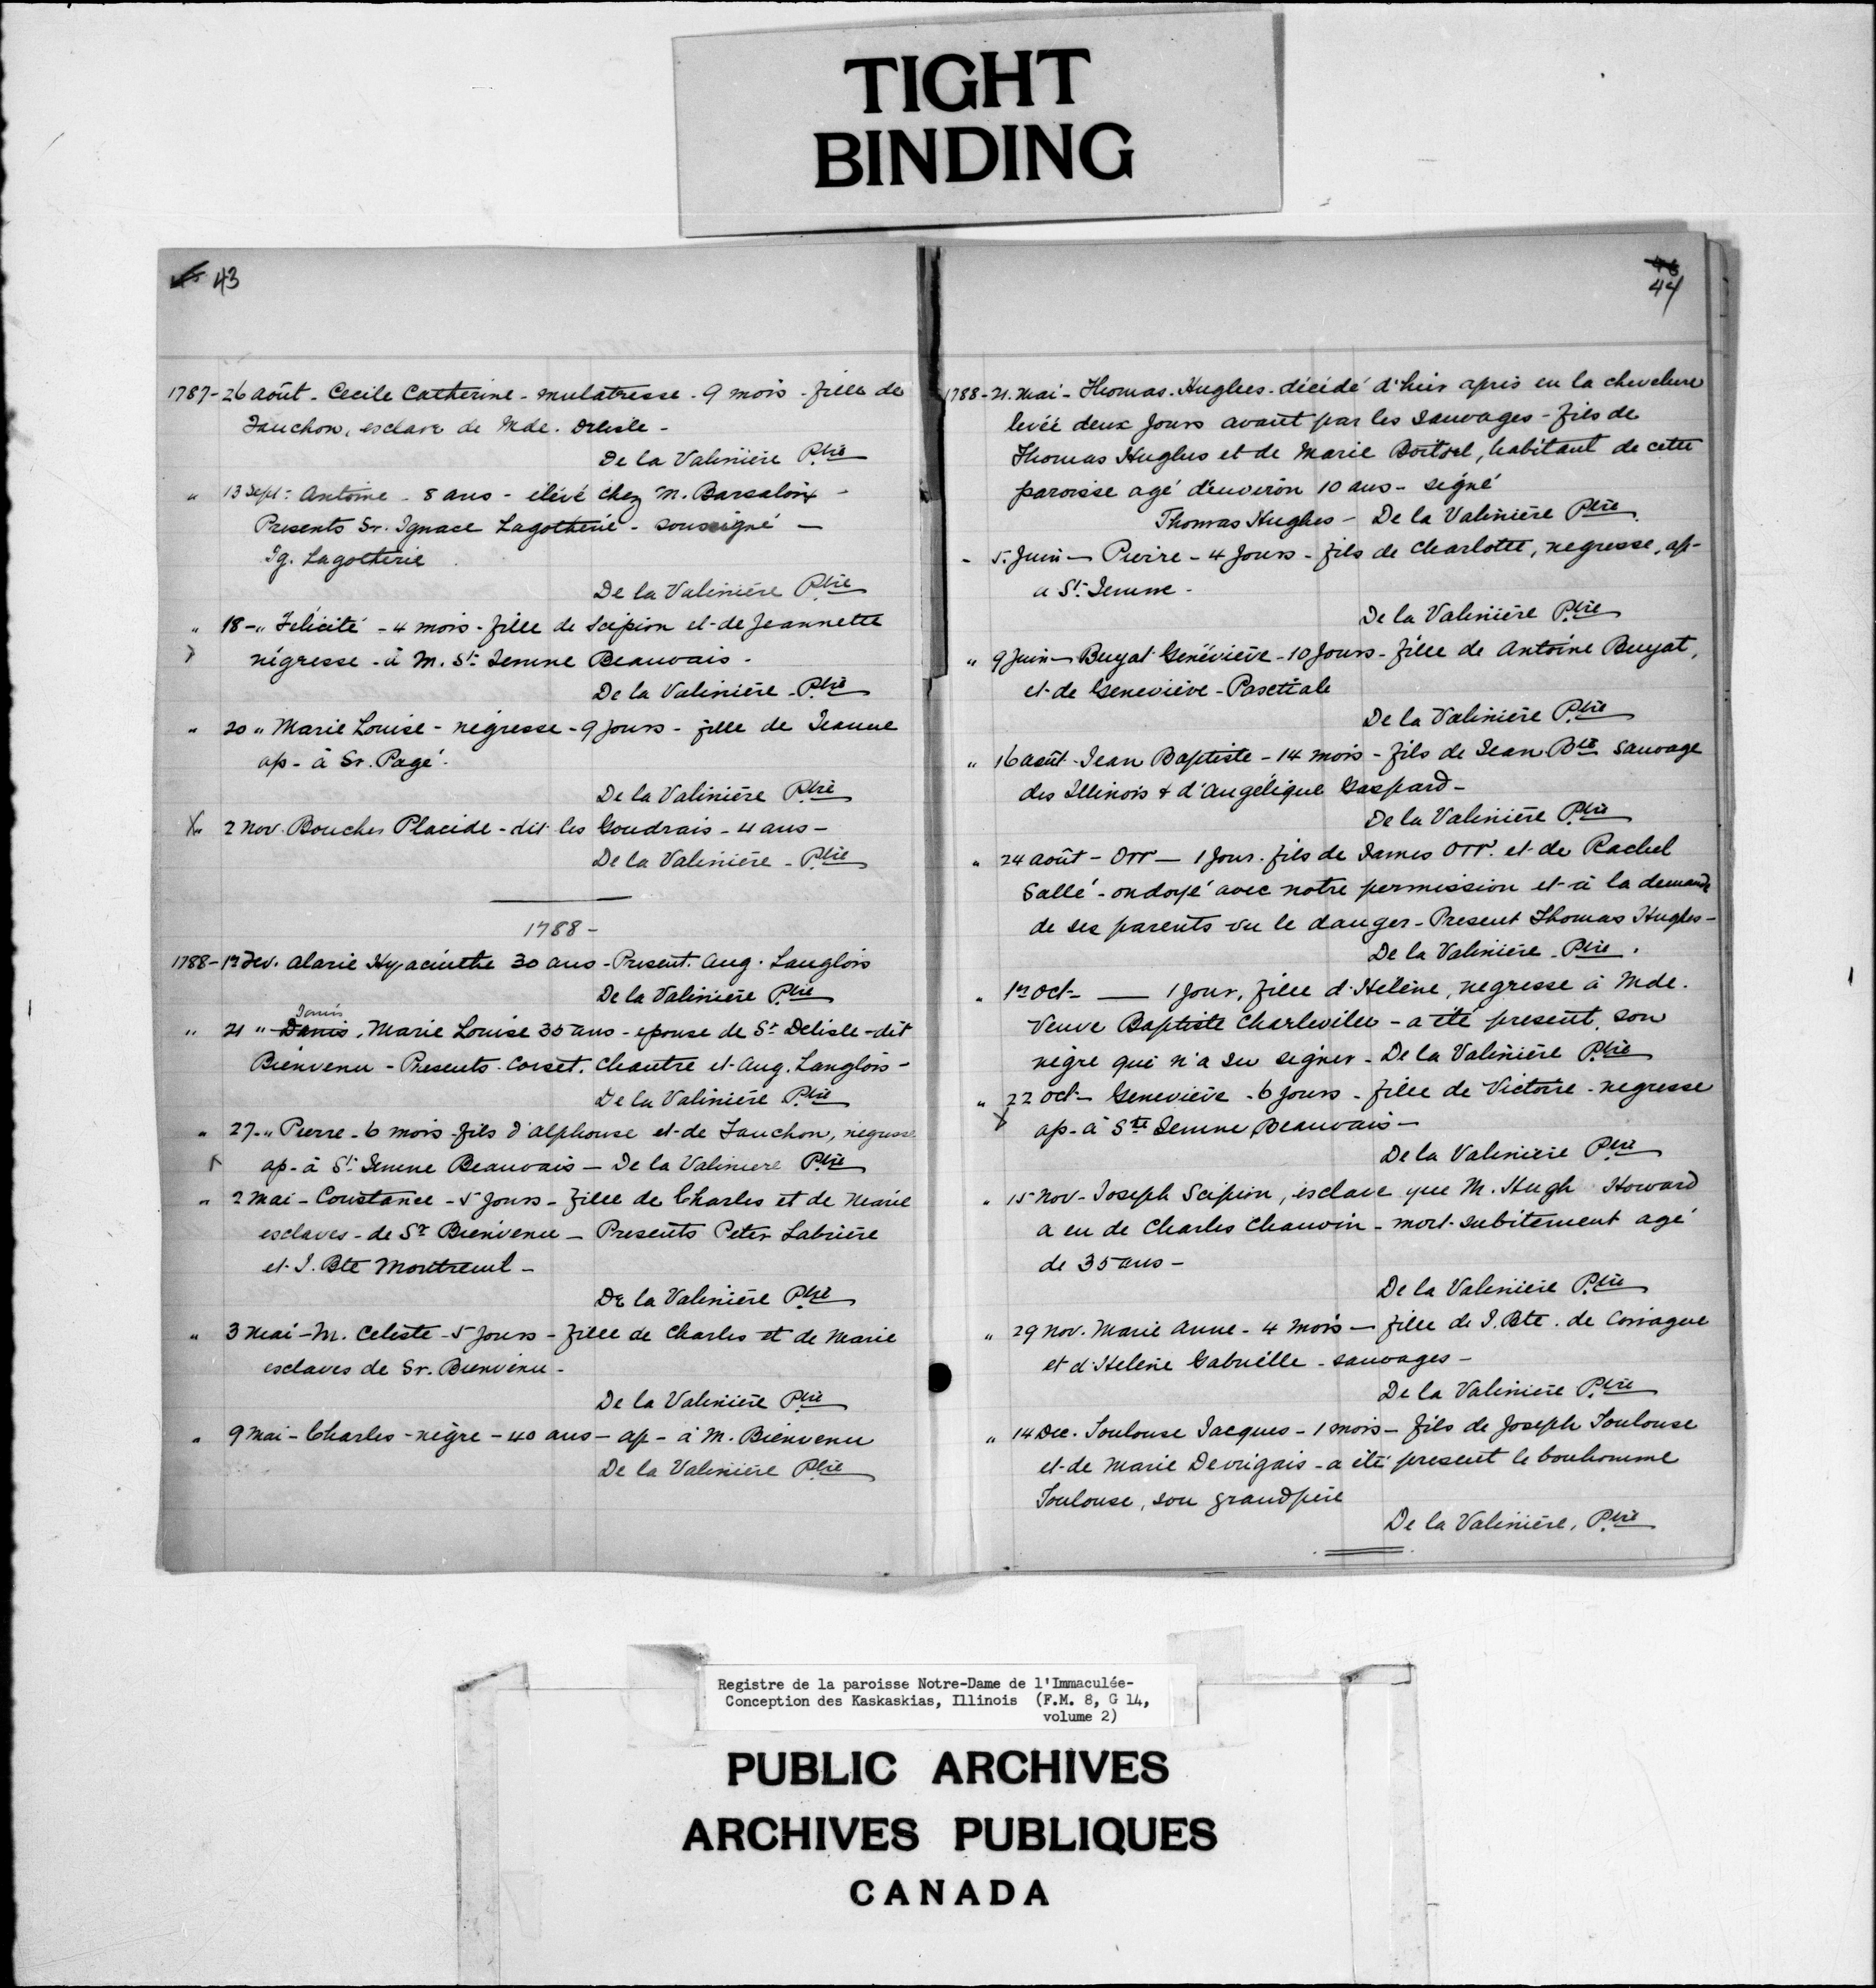 TIGHT
BINDING
43
1787-26 août - Cecile Catherine - mulatresse - 9 mois - fille de
Fanchon, esclave de Mde. Delisle -
De la Valinière Ptre
" 13 Sept: Antoine - 8 ans - élévé chez M. Barsaloix -
Presents Sr. Ignace Lagotherie - soussigné -
Ig. Lagotherie
De la Valinière Ptre
" 18 - " Félicité - 4 mois - fille de Scipion et de Jeannette
négresse - à M. St. Jemme Beauvais -
De la Valinière - Ptre
" 20 " Marie Louise - négresse - 9 jours - fille de Jeanne
ap - à Sr. Pagé -
De la Valinière Ptre
X " 2 Nov. Boucher Placide - dit les Goudrais - 4 ans -
De la Valinière - Ptre
1788 -
1788 - 1er Fev. Alarie Hyacinthe 30 ans - Present. Aug. Langlois
De la Valinière Ptre
Janis
" 21 " Danis, Marie Louise 35 ans - epouse de Sr Delisle - dit
Bienvenu - Presents - Corset, Chantre et Aug. Langlois -
De la Valinière Ptre
" 27 - " Pierre - 6 mois - fils d'alphonse et de Fanchon, negresse
ap - à St. Jemme Beauvais - De la Valiniere Ptre
" 2 Mai - Constance - 5 jours - fille de Charles et de Marie
esclaves - de Sr Bienvenu - Presents Peter Labrière
et J. Bte Montreuil -
De la Valinière Ptre
" 3 Mai - M. Celeste - 5 jours - fille de Charles et de Marie
esclaves de Sr. Bienvenu -
De la Valinière Ptre
" 9 Mai - Charles - nègre - 40 ans - ap - à M. Bienvenu
De la Valinière Ptre
44
1788 - 21. Mai - Thomas Hughes - décédé d'hier après eu la chevelure
levée deux jours avant par les sauvages - fils de
Thomas Hughes et de Marie Boitsel, habitant de cette
paroisse agé d'environ 10 ans - signé
Thomas Hughes - De la Valinière Ptre.
- 5. Juin - Pierre - 4 jours - fils de Charlotte, negresse, ap -
a St. Jemme -
De la Valinière Ptre
" 9 Juin - Buyat Généviève - 10 jours - fille de Antoine Buyat,
et de Geneviève - Pasctiale
De la Valinière Ptre
" 16 août - Jean Baptiste - 14 mois - fils de Jean Bte Sauvage
des Illinois & d'angélique Gaspard -
De la Valinière Ptre
" 24 août - Orr - 1 jour. fils de James Orr. et de Rachel
Sallé - ondoyé avec notre permission et à la demande
de ses parents vu le danger - Present Thomas Hughes -
De la Valinière - Ptre.
" 1er Oct - — 1 jour, fille d'Hélène, negresse à Mde.
Veuve Baptiste Charleville - a été present, son
nègre qui n'a su signer - De la Valinière Ptre
" 22 Oct - Geneviève - 6 jours - fille de Victoire - negresse
ap - à Ste Jemme Beauvais -
De la Valinière Ptre
" 15 Nov - Joseph Scipion, esclave que M. Hugh Howard
a eu de Charles Chauvin - mort subitement agé
de 35 ans -
De la Valinière Ptre
" 29 Nov. Marie Anne - 4 mois - fille de J. Bte. de Coriague
et d'Helène Gabrielle - sauvages -
De la Valinière Ptre
" 14 Dec. Toulouse Jacques - 1 mois - fils de Joseph Toulouse
et de Marie Devrigais - a été present le bonhomme
Toulouse, son grandpère
De la Valinière, Ptre
Registre de la paroisse Notre-Dame de l'Immaculée-
Conception des Kaskaskias, Illinois (F.M. 8, G 14,
volume 2)
PUBLIC ARCHIVES
ARCHIVES PUBLIQUES
CANADA